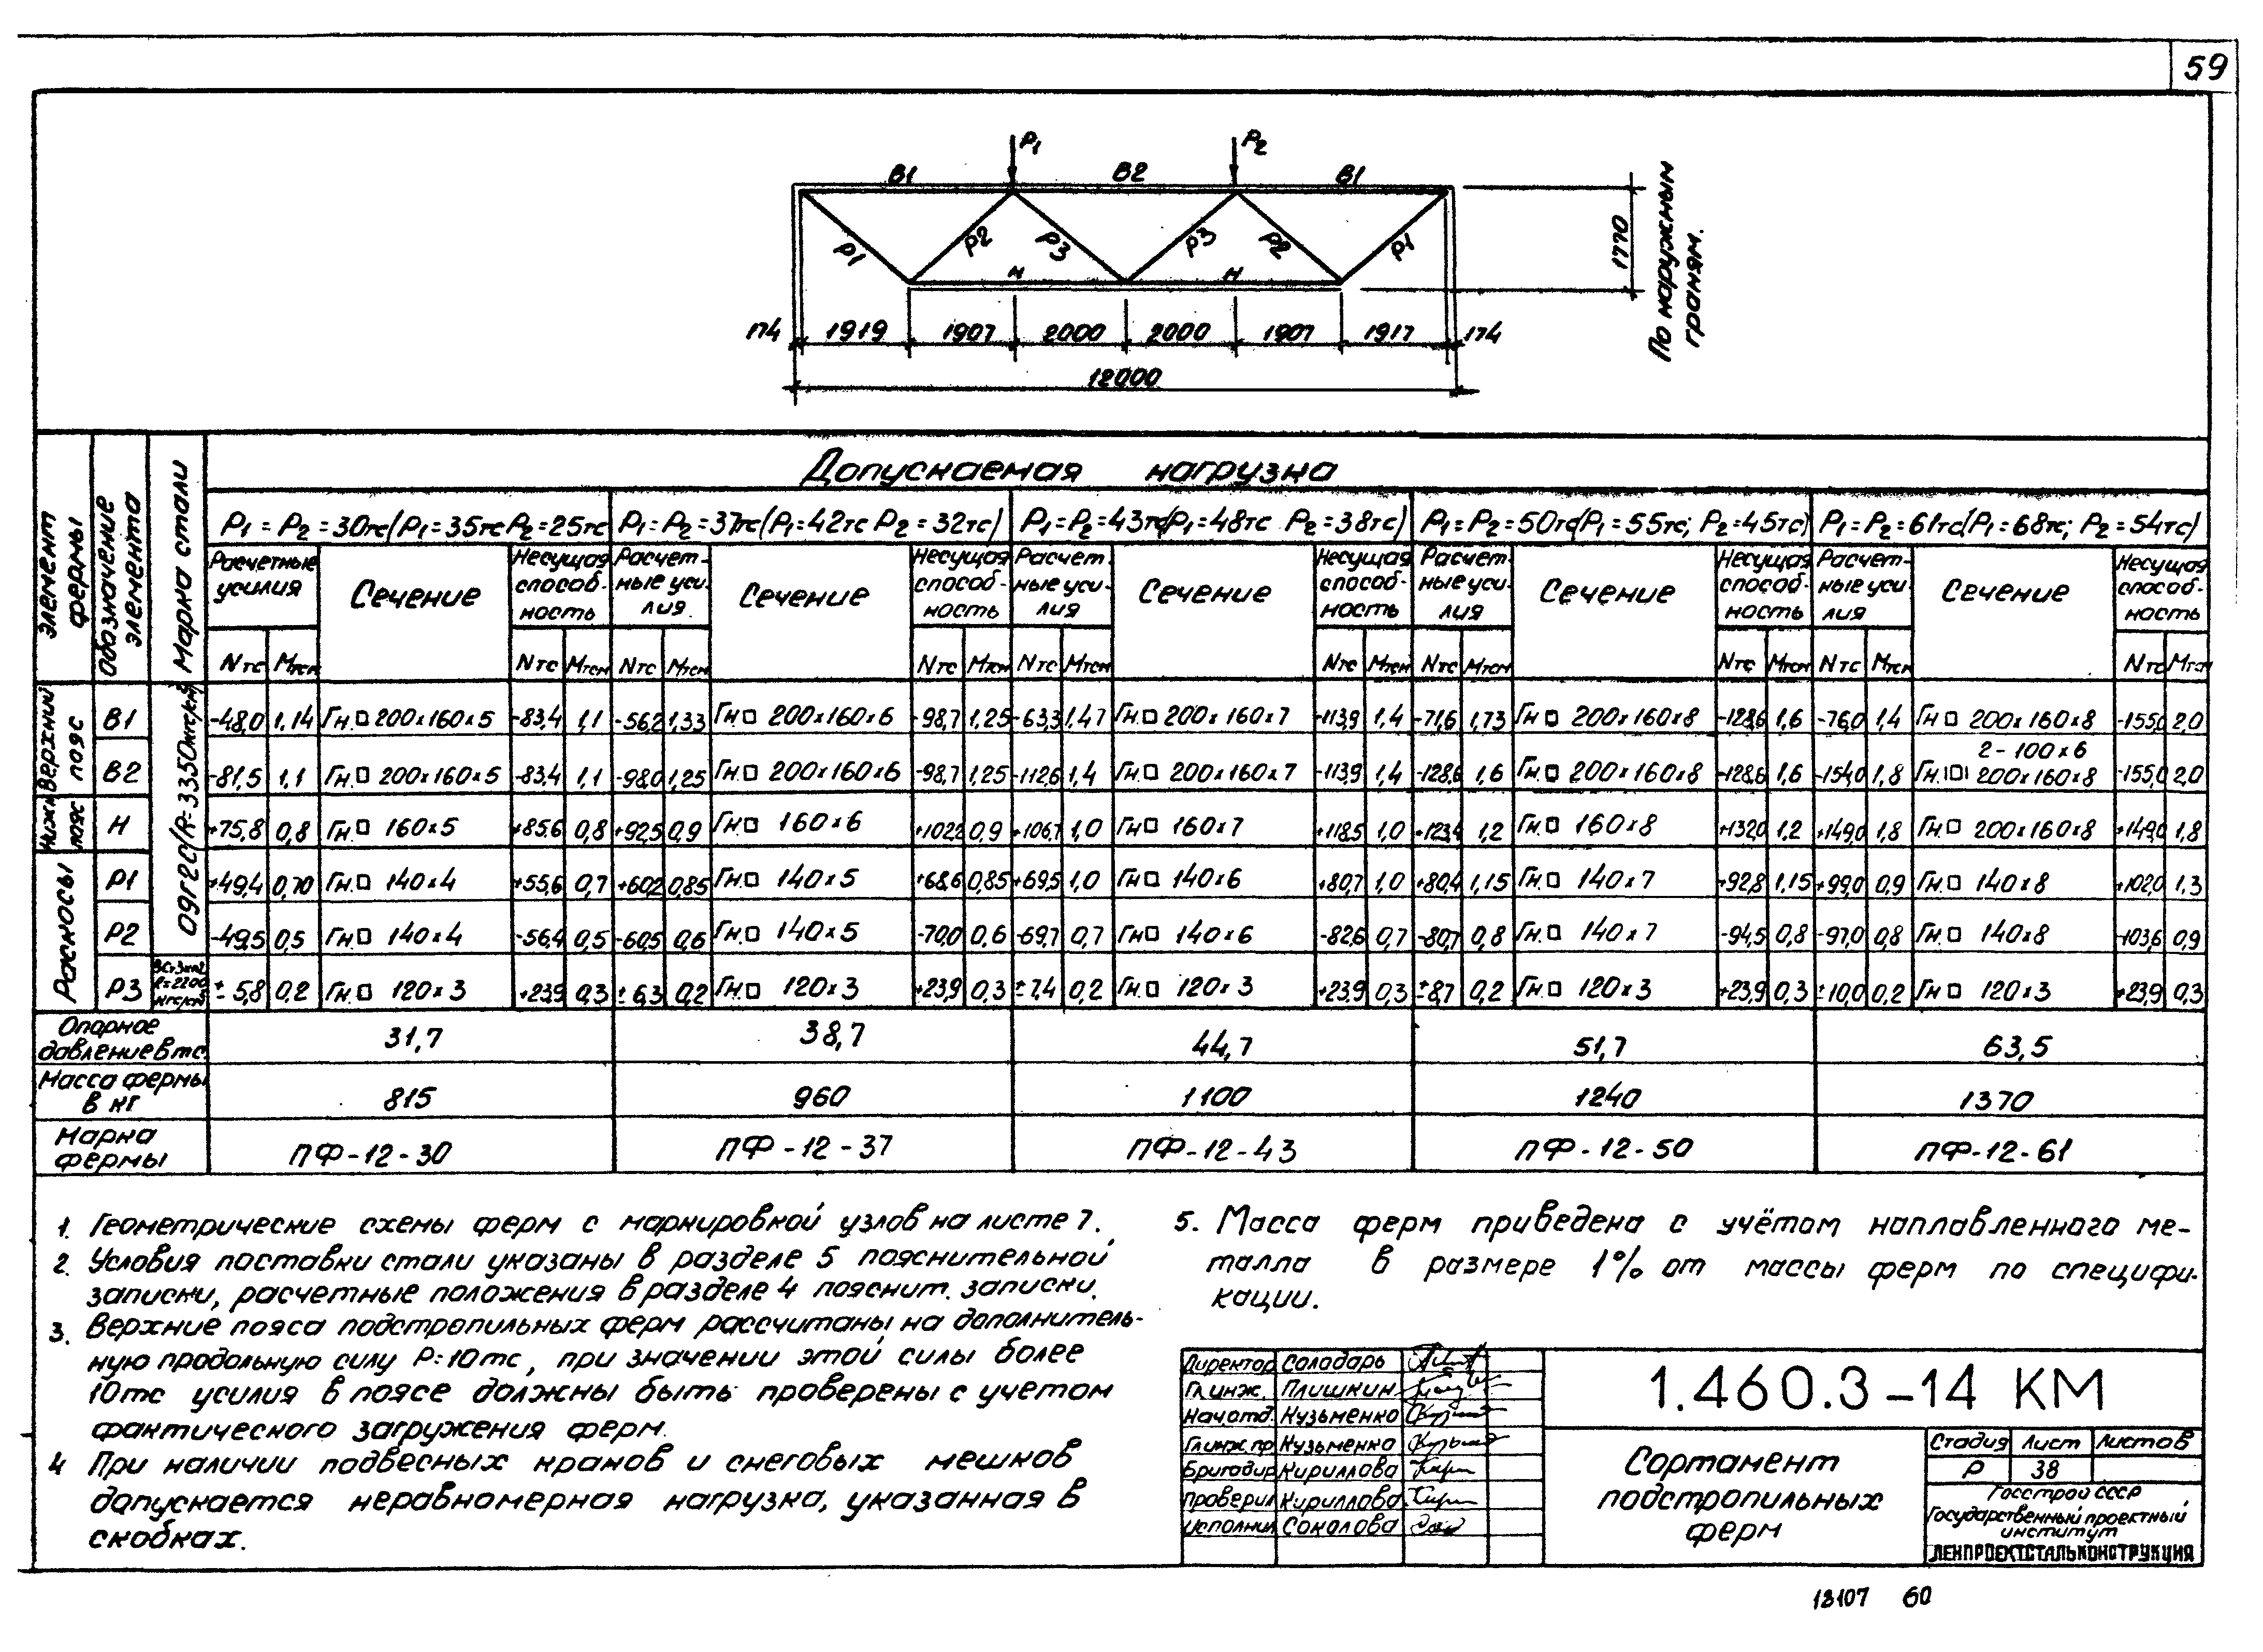 59
P1 P2
В1 В2 В1
Р1 Р2 Р3 Р3 Р2 Р1
Н Н
1770
По наружным
граням.
174 1919 1907 2000 2000 1907 1917 174
12000
Элемент фермы
Обозначение элемента
Марка стали
Допускаемая нагрузка
P1 = P2 = 30тс (P1 = 35тс P2 = 25тс P1 = P2 = 37тс (P1 = 42тс P2 = 32тс) P1 = P2 = 43тс (P1 = 48тс P2 = 38тс) P1 = P2 = 50тс (P1 = 55тс; P2 = 45тс) P1 = P2 = 61тс (P1 = 68тс; P2 = 54тс)
Расчетные усилия Сечение Несущая способ-ность Расчет-ные уси-лия Сечение Несущая способ-ность Расчет-ные уси-лия Сечение Несущая способ-ность Расчет-ные уси-лия Сечение Несущая способ-ность Расчет-ные уси-лия Сечение Несущая способ-ность
Nтс Mтсм Nтс Mтсм Nтс Mтсм Nтс Mтсм Nтс Mтсм Nтс Mтсм Nтс Mтсм Nтс Mтсм Nтс Mтсм Nтс Mтсм
Верхний пояс
09Г2С (R=3350кгс/см²)
В1 -48,0 1,14 Гн.□ 200х160х5 -83,4 1,1 -56,2 1,33 Гн.□ 200х160х6 -98,7 1,25 -63,3 1,47 Гн.□ 200х160х7 -113,9 1,4 -71,6 1,73 Гн □ 200х160х8 -128,6 1,6 -76,0 1,4 Гн □ 200х160х8 -155,0 2,0
В2 -81,5 1,1 Гн.□ 200х160х5 -83,4 1,1 -98,0 1,25 Гн.□ 200х160х6 -98,7 1,25 -112,6 1,4 Гн.□ 200х160х7 -113,9 1,4 -128,6 1,6 Гн.□ 200х160х8 -128,6 1,6 -154,0 1,8 2-100х6 Гн.|□| 200х160х8 -155,0 2,0
Нижн пояс
Н +75,8 0,8 Гн.□ 160х5 +85,6 0,8 +92,5 0,9 Гн.□ 160х6 +102,2 0,9 +106,7 1,0 Гн□ 160х7 +118,5 1,0 +123,4 1,2 Гн.□ 160х8 +132,0 1,2 +149,0 1,8 Гн.□ 200х160х8 +149,0 1,8
Раскосы
Р1 +49,4 0,70 Гн.□ 140х4 +55,6 0,7 +60,2 0,85 Гн.□ 140х5 +68,6 0,85 +69,5 1,0 Гн□ 140х6 +80,7 1,0 +80,4 1,15 Гн.□ 140х7 +92,8 1,15 +99,0 0,9 Гн.□ 140х8 +102,0 1,3
Р2 -49,5 0,5 Гн.□ 140х4 -56,4 0,5 -60,5 0,6 Гн.□ 140х5 -70,0 0,6 -69,7 0,7 Гн□ 140х6 -82,6 0,7 -80,7 0,8 Гн.□ 140х7 -94,5 0,8 -97,0 0,8 Гн.□ 140х8 -103,6 0,9
Р3 R=2200 ± 5,8 0,2 Гн.□ 120х3 +23,9 0,3 ± 6,3 0,2 Гн.□ 120х3 +23,9 0,3 ± 7,4 0,2 Гн.□ 120х3 +23,9 0,3 ±8,7 0,2 Гн.□ 120х3 +23,9 0,3 ±10,0 0,2 Гн □ 120х3 +23,9 0,3
Опорное давление в тс. 31,7 38,7 44,7 51,7 63,5
Масса фермы в кг 815 960 1100 1240 1370
Марка фермы ПФ-12-30 ПФ-12-37 ПФ-12-43 ПФ-12-50 ПФ-12-61
1. Геометрические схемы ферм с маркировкой узлов на листе 7.
2. Условия поставки стали указаны в разделе 5 пояснительной
записки, расчетные положения в разделе 4 пояснит. записки.
3. Верхние пояса подстропильных ферм рассчитаны на дополнитель-
ную продольную силу P=10тс, при значении этой силы более
10тс усилия в поясе должны быть проверены с учетом
фактического загружения ферм.
4 При наличии подвесных кранов и снеговых мешков
допускается неравномерная нагрузка, указанная в
скобках.
5. Масса ферм приведена с учётом наплавленного ме-
талла в размере 1% от массы ферм по специфи-
кации.
Директор Солодарь
Гл.инж. Плишкин
Нач.отд. Кузьменко
Гл.инж.пр Кузьменко
Бригадир Кириллова
Проверил Кириллова
Исполнил Соколова
1.460.3-14 КМ
Сортамент
подстропильных
ферм
Стадия Лист Листов
Р 38
Госстрой СССР
Государственный проектный
институт
ЛЕНПРОЕКТСТАЛЬКОНСТРУКЦИЯ
18107 60